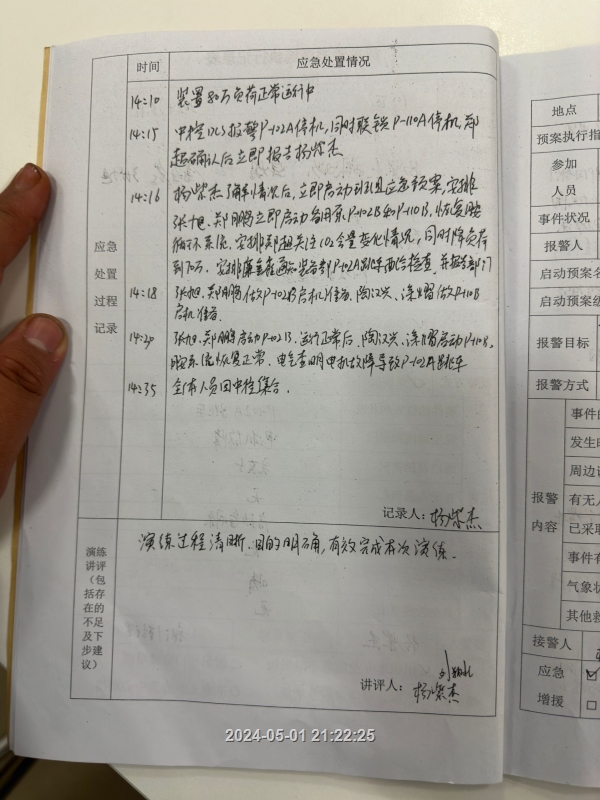 时间 应急处置情况
14:10 装置80万负荷正常运行中
14:15 中控DCS报警P-102A停机,同时联锁P-110A停机,郑
超确认后立即报告杨紫杰
14:16 杨紫杰了解情况后,立即启动应急预案,安排
张旭、郑鹏立即启动备用泵P-102B和P-110B,恢复脱
循环系统,安排郑超关注CO2含量变化情况,同时降负荷
到70万,安排通知装卸P-102A检查,并报告部门
14:18 张旭、郑鹏做P-102B启机准备,陶汉兴、涂做P-110B
启机准备
14:20 张旭、郑鹏启动P-102B,运行正常后,陶汉兴、涂启动P-110B,
脱系统恢复正常,电气查明电机故障导致P-102A跳车
14:35 全体人员回中控集合.
应急
处置
过程
记录
记录人:杨紫杰
演练
讲评
(包
括存
在的
不足
及下
步建
议)
演练过程清晰,目的明确,有效完成本次演练.
讲评人:杨紫杰
地点
预案执行指
参加
人员
事件状况
报警人
启动预案名
启动预案级
报警目标
报警方式
报警
内容
事件的
发生时
周边设
有无人
已采取
事件有
气象状
其他救
接警人
应急
增援
2024-05-01 21:22:25